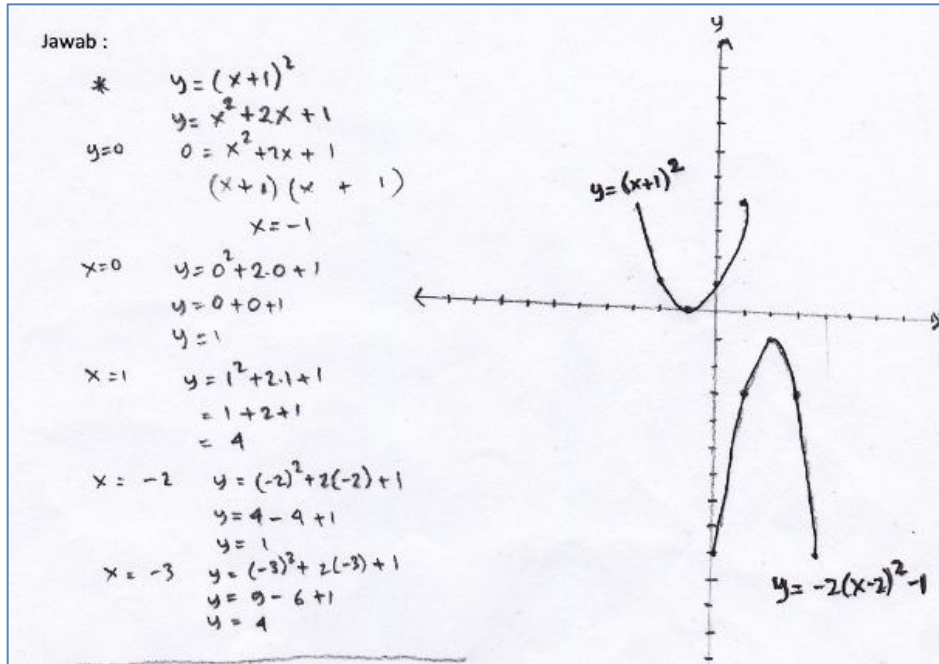 Jawab :
* y = (x+1)²
y = x² + 2x + 1
y=0 0 = x² + 2x + 1
(x+1) (x + 1)
x = -1
x=0 y = 0² + 2.0 + 1
y = 0 + 0 + 1
y = 1
x=1 y = 1² + 2.1 + 1
= 1 + 2 + 1
= 4
x = -2 y = (-2)² + 2(-2) + 1
y = 4 - 4 + 1
y = 1
x = -3 y = (-3)² + 2(-3) + 1
y = 9 - 6 + 1
y = 4
y
y = (x+1)²
y = -2(x-2)² - 1